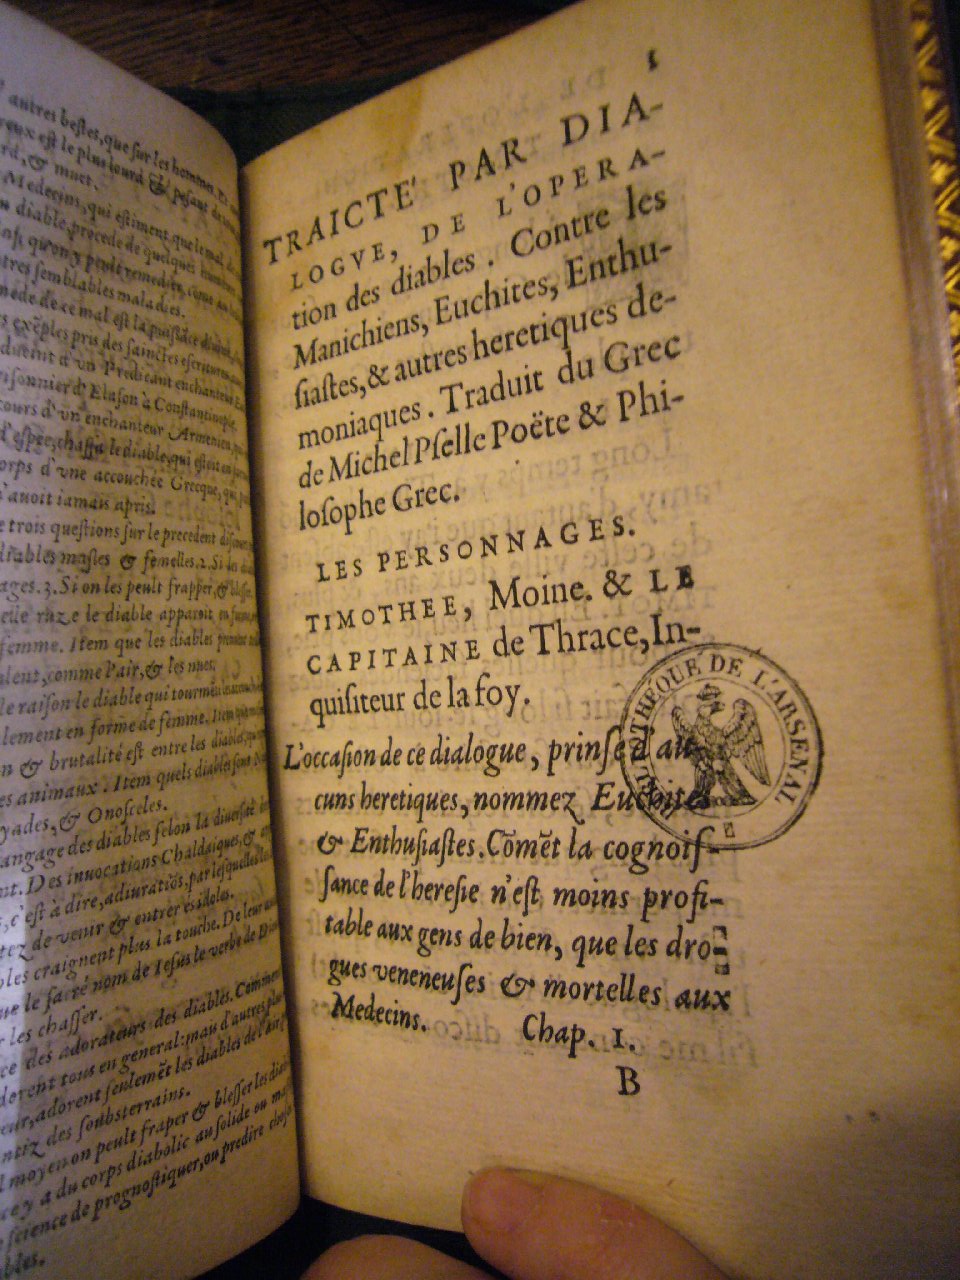 autres bestes, que sur les hommes.
reux est le plus lourd & pesant
rd, & muet.
Medecins, qui estiment que le mal
diable, procede de quelques humeurs
qu'on y peult remedier, cõme
tres semblables maladies.
mede de ce mal est la puissãce
exẽples pris des sainctes escritures
d'un Predicant enchanteur
sonnier d'Elason à Constantinople.
cours d'vn enchanteur Armenien, qui
d'espee, chassa le diable, qui estoit en
corps d'vne accouchée Grecque, qui
n'auoit iamais apris.
trois questions sur le precedent discours
diables masles & femelles. 2. Si les
ages. 3. Si on les peult frapper, &
elle ruze le diable apparoit en
femme. Item que les diables prennent
lent, comme l'air, & les nues.
le raison le diable qui tourmẽte
lement en forme de femme. Item
n & brutalité est entre les diables,
es animaux. Item quels diables sont
yades, & Onosceles.
langage des diables selon la diuersité
nt. Des inuocations Chaldaiques, &
s, c'est à dire, adiuratiõs, par lesquelles
tez de venir & entrer es idoles.
bles craignent plus la touche. De leur
ue le sacré nom de Iesus le verbe de Dieu
r les chasser.
ce des adorateurs des diables. Comment
dorent tous en general: mais d'autres plus
eur, adorent seulemẽt les diables de l'air
ntiz des soubsterrains.
l moyen on peult fraper & blesser les diables
ce y a du corps diabolic au solide ou
science de prognostiquer, ou predire choses
bles.
1
TRAICTE' PAR DIA-
LOGVE, DE L'OPERA-
tion des diables. Contre les
Manichiens, Euchites, Enthu-
siastes, & autres heretiques de-
moniaques. Traduit du Grec
de Michel Pselle Poëte & Phi-
losophe Grec.
LES PERSONNAGES.
TIMOTHEE, Moine. & LE
CAPITAINE de Thrace, In-
quisiteur de la foy.
L'occasion de ce dialogue, prinse d'au-
cuns heretiques, nommez Euchites
& Enthusiastes. Cõmẽt la cognois-
sance de l'heresie n'est moins profi-
table aux gens de bien, que les dro-
gues veneneuses & mortelles aux
Medecins. Chap. 1.
B
BIBLIOTHÉQUE DE L'ARSENAL